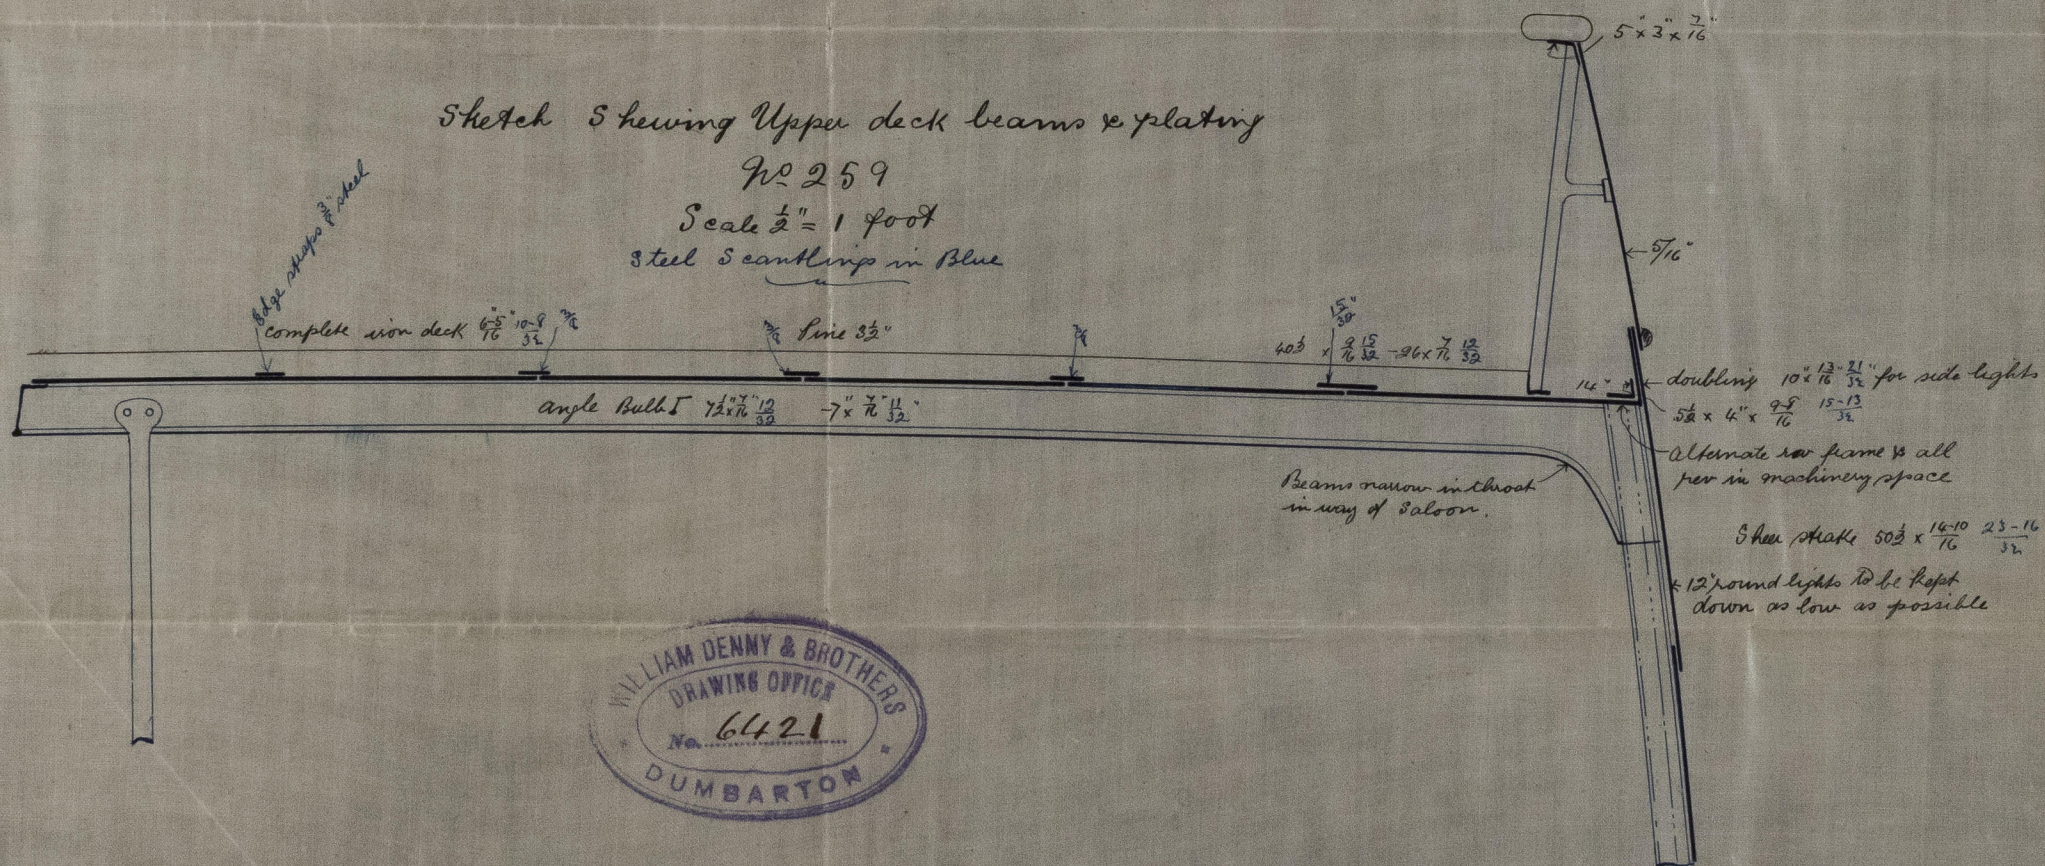 Sketch Shewing Upper deck beams & plating
No 259
Scale 1/2" = 1 foot
Steel Scantlings in Blue
5" x 3" x 7/16"
Edge straps 3/8" steel
complete iron deck 6-5/16" 10-9/32 3/8
3/8 Pine 3 1/2"
3/8
15/32"
40 1/2 x 9/16 15/32 - 26 x 7/16 12/32
5/16"
14"
doubling 10" x 13/16" 21/32" for side lights
5 1/2 x 4" x 9-8/16 15-13/32
angle Bulb I 7 1/2" x 7/16" 12/32 - 7" x 7/16" 11/32"
Alternate rev frame & all
rev in machinery space
Beams narrow in throat
in way of Saloon.
Sheer strake 50 1/2 x 14-10/16 23-16/32
12" round lights to be kept
down as low as possible
WILLIAM DENNY & BROTHERS
DRAWING OFFICE
No. 6421
DUMBARTON